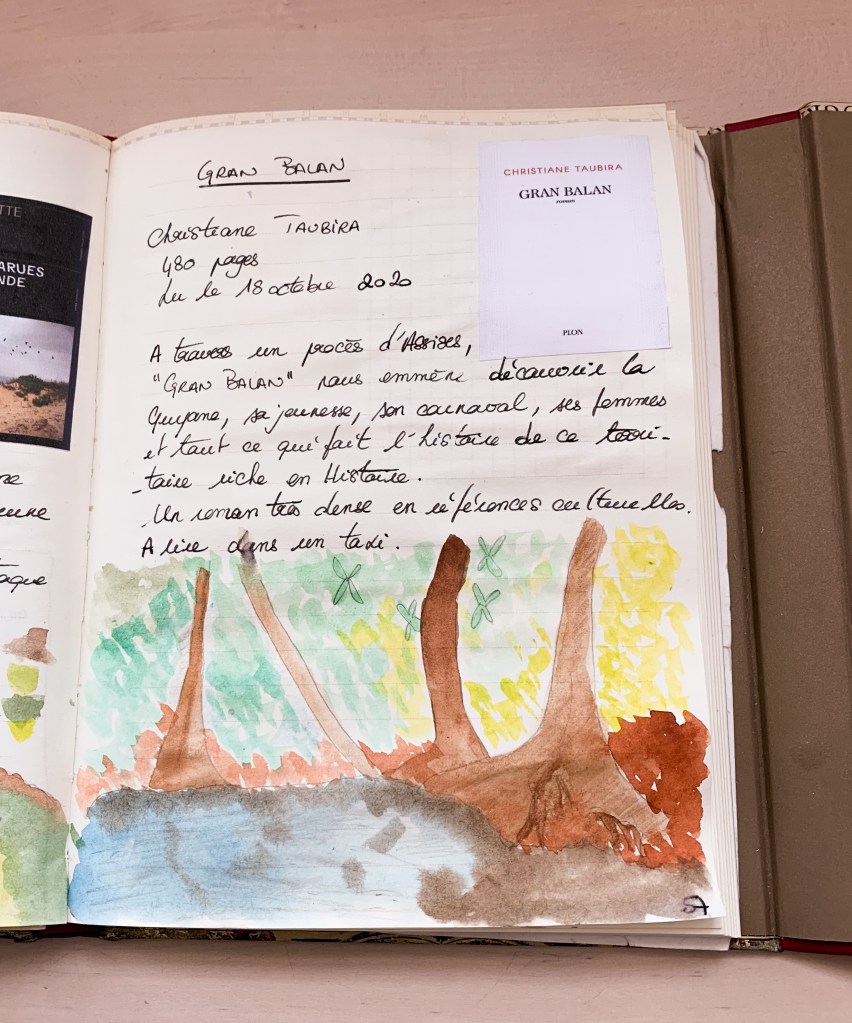 TTE
ARUES
NDE
GRAN BALAN
Christiane TAUBIRA
480 pages
Lu le 18 octobre 2020
CHRISTIANE TAUBIRA
GRAN BALAN
roman
PLON
A travers un procès d'Assises,
"GRAN BALAN" nous emmène découvrir la
Guyane, sa jeunesse, son carnaval, ses femmes
et tout ce qui fait l'histoire de ce terri-
-toire riche en Histoire.
Un roman très dense en références culturelles.
A lire dans un taxi.